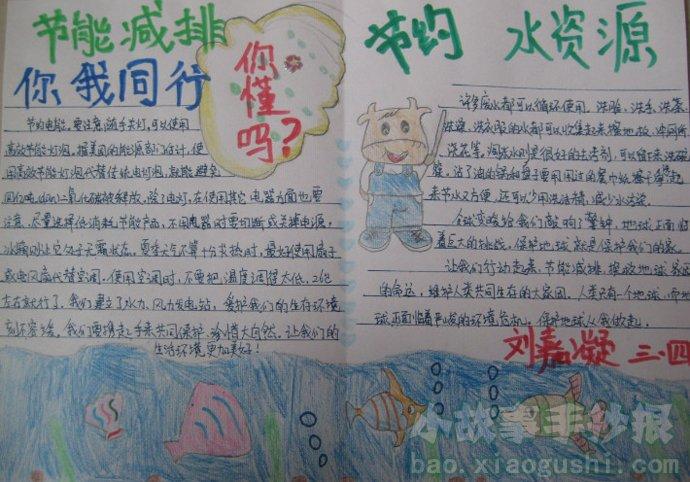 节能减排
你我同行
你
懂
吗?
节约电能,要注意随手关灯,可以使用
高效节能灯泡,据美国的能源部门估计,使
用高效节能灯泡代替传统电灯泡,就能避免
二氧化碳被释放。除了电灯,在使用其它电器方面也要
注意,尽量选择低消耗节能产品,不用电器时要切断或关掉电源。
冰箱
天气不算十分炎热时,最好使用扇子
或电风扇代替空调,使用空调时,不要把温度调得太低,26℃
左右就行了,我们建了水力、风力发电站,爱护我们的生存环境
刻不容缓。我们要携起手来共同保护、珍惜大自然,让我们的
生活环境更加美好!
节约 水资源
许多废水都可以循环使用。洗脸、洗手、洗菜、
洗澡、洗衣服的水都可以收集起来擦地板、冲厕所、
洗花等。淘米水则是很好的去污剂,可以留下来洗碗
筷,沾了油的锅和盘子要用用过的餐巾纸擦干净
来节水又方便,还可以少用洗洁精,减少水污染。
全球变暖给我们敲响了警钟,地球正面临
着巨大的挑战。保护地球就是保护我们的家。
让我们行动起来,节能减排,拯救地球家园
的命运,维护人类共同生存的大家园,人类只有一个地球,而地
球正面临着严峻的环境危机,保护地球从我做起。
刘嘉凝 三.四
小故事手抄报
bao.xiaogushi.com